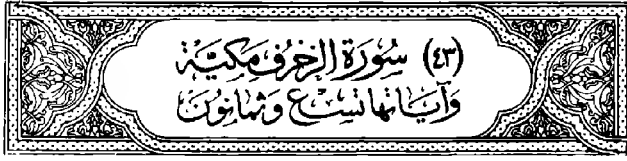 (٤٣) سُورَةُ الزُّخْرُفِ مَكِّيَّة
وَآيَاتُهَا تِسْعٌ وَثَمَانُونَ